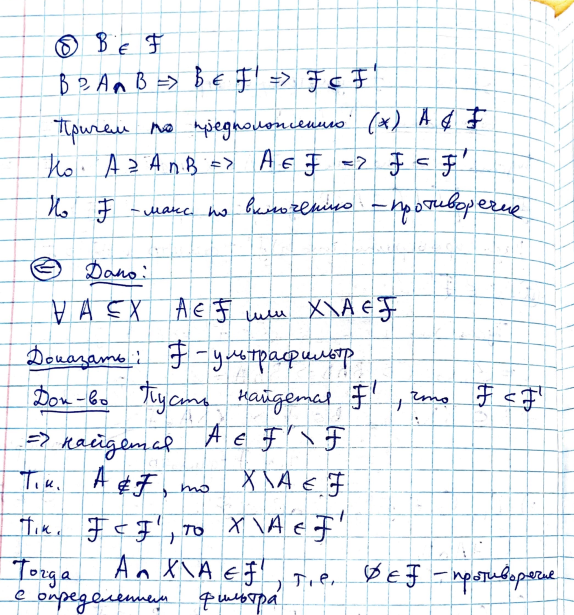 б) B ∈ F
B ⊇ A ∩ B => B ∈ F' => F ⊆ F'
Причем по предположению (x) A ∉ F
Но A ⊇ A ∩ B => A ∈ F => F ⊂ F'
Но F - макс. по включению - противоречие
<= Дано:
∀ A ⊆ X A ∈ F или X\A ∈ F
Доказать: F - ультрафильтр
Док-во Пусть найдется F', что F ⊂ F'
=> найдется A ∈ F' \ F
Т.к. A ∉ F, то X\A ∈ F
Т.к. F ⊂ F', то X\A ∈ F'
Тогда A ∩ X\A ∈ F', т.е. ∅ ∈ F - противоречие
с определением фильтра